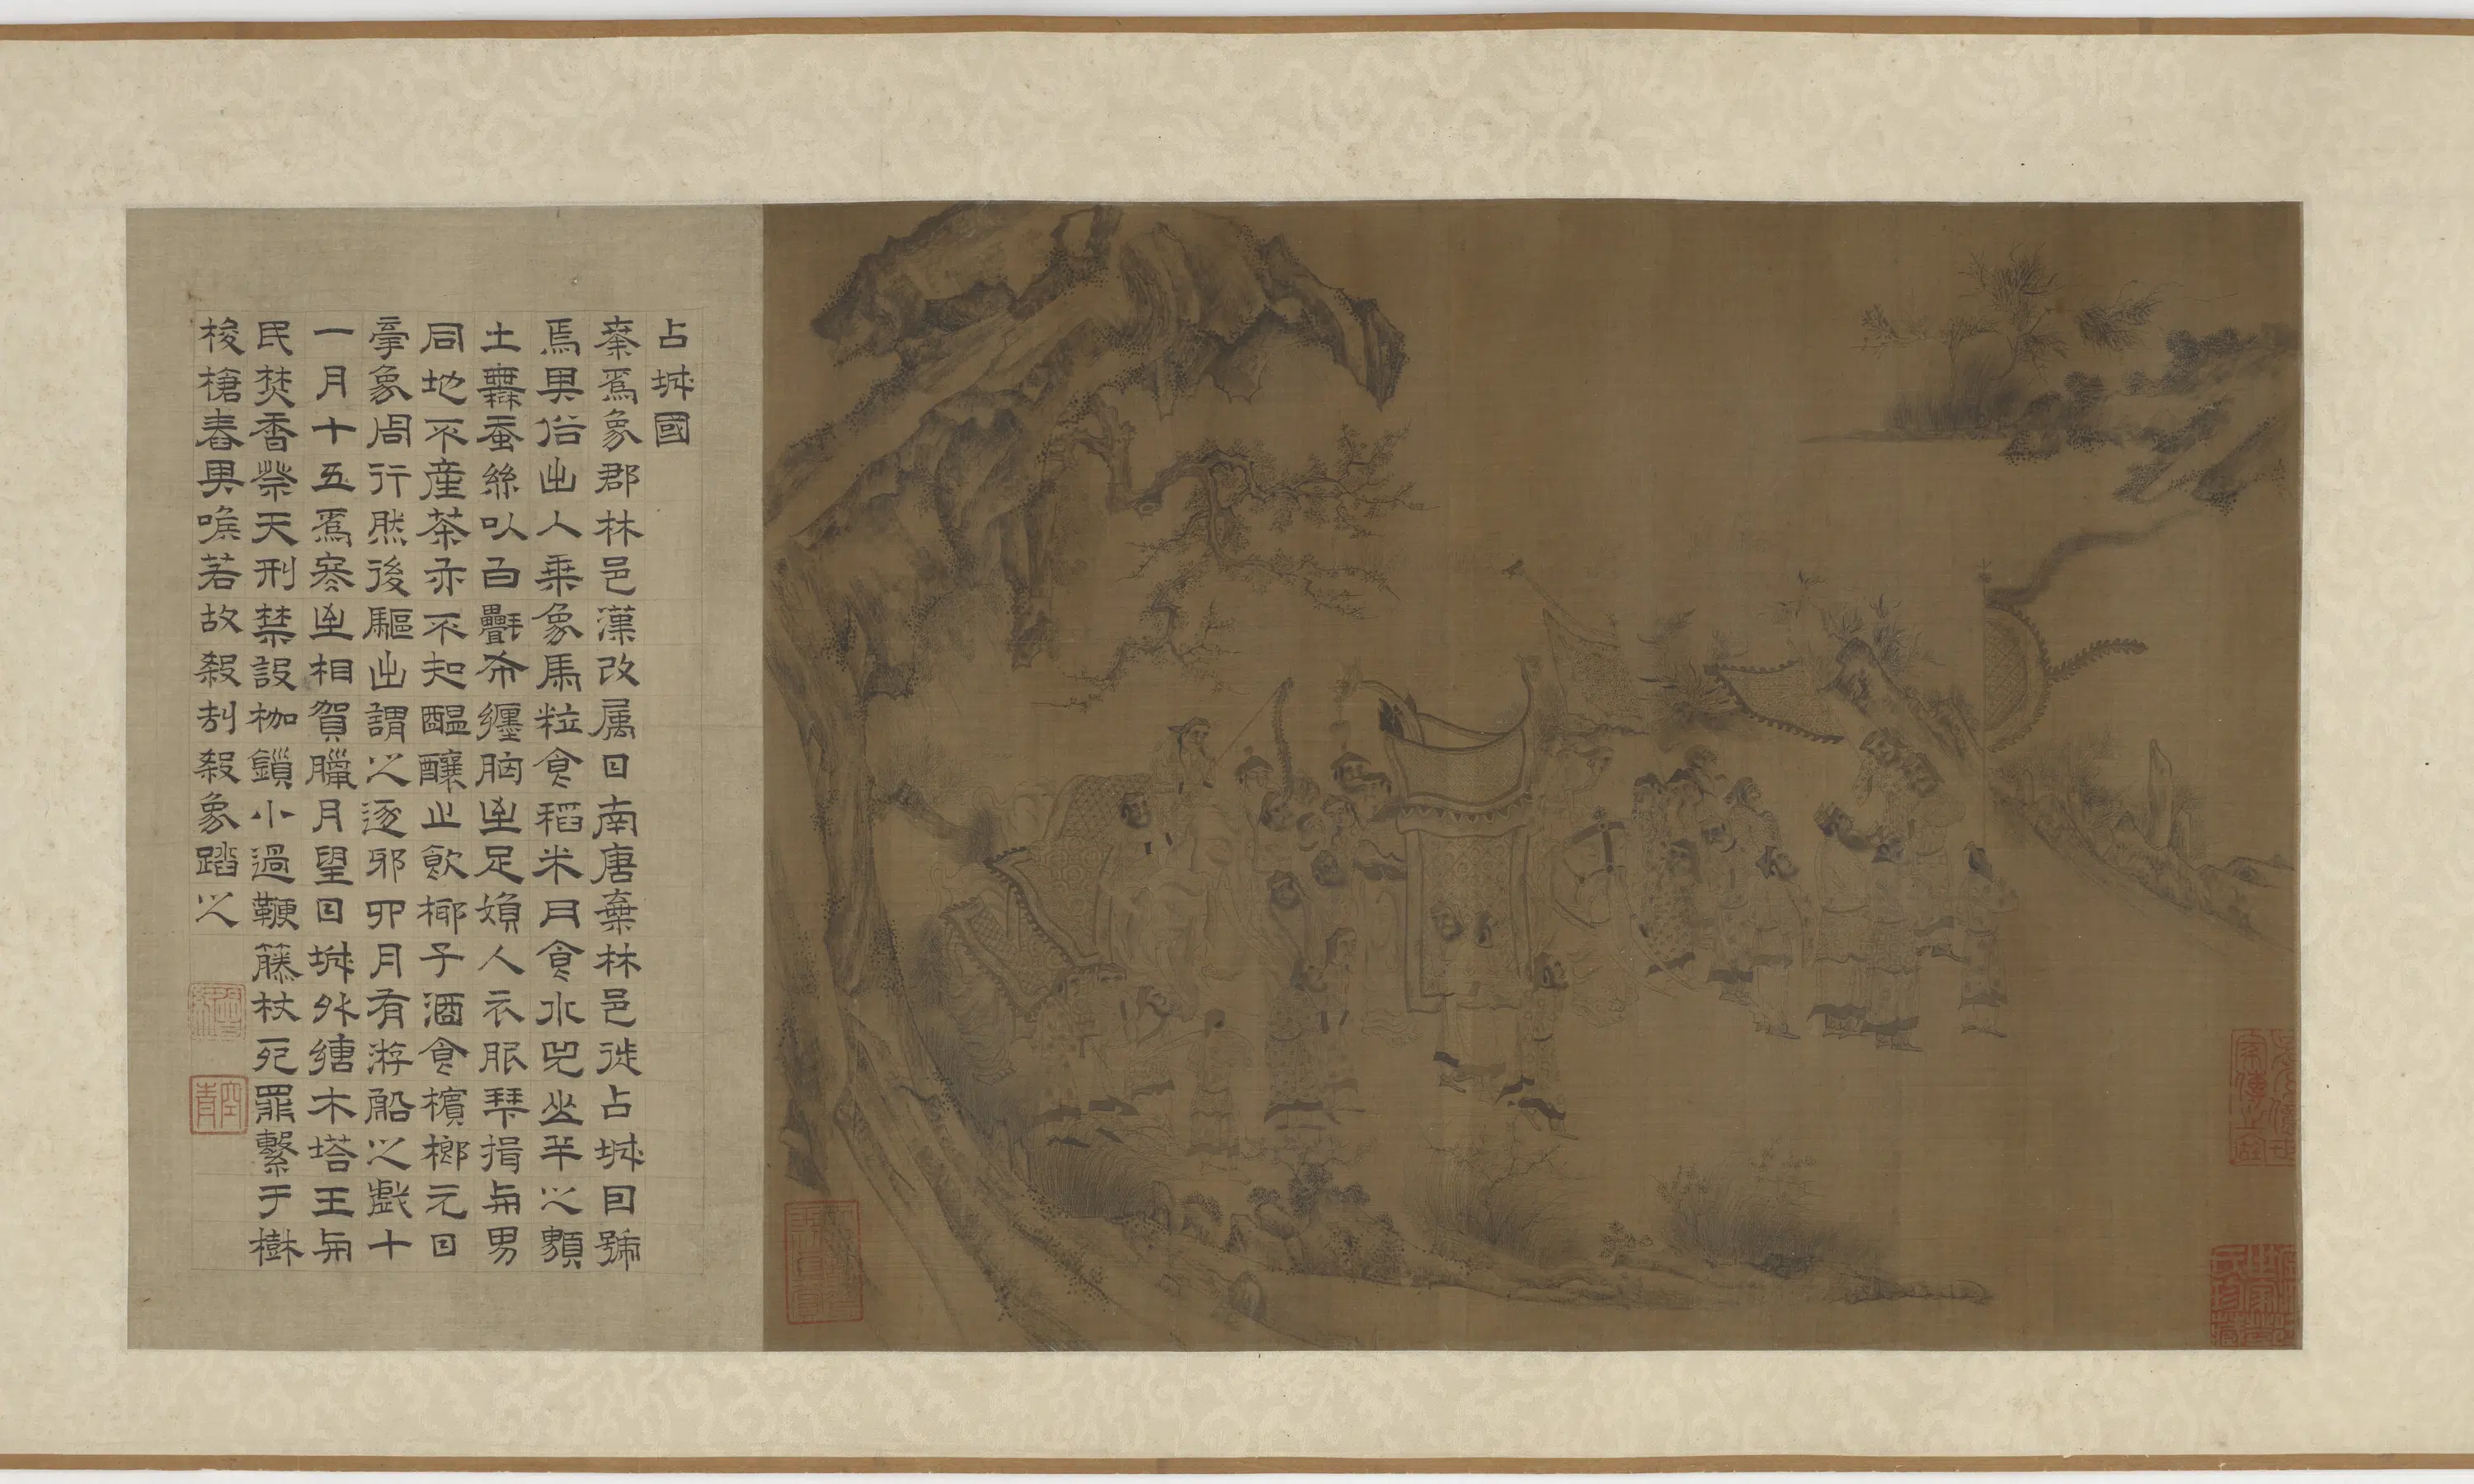 占城國
秦爲象郡林邑漢改属日南唐棄林邑徙占城曰號
焉異俗出人乗象馬粒食稻米月食水兕㞢羊之䫉
土無蚕絲以白氎布纏胸至足嬪人衣服琴揖與男
同地不産茶亦不知醞釀止飮椰子酒食檳榔元日
牽象周行然後驅出謂之逐邪卯月有游船之戲十
一月十五爲寒至相賀臘月望日城外縛木塔王與
民焚香禜天刑禁設枷鎖小過鞭籐杖死罪繫于樹
梭槍舂其喉若故殺刦殺象踏之